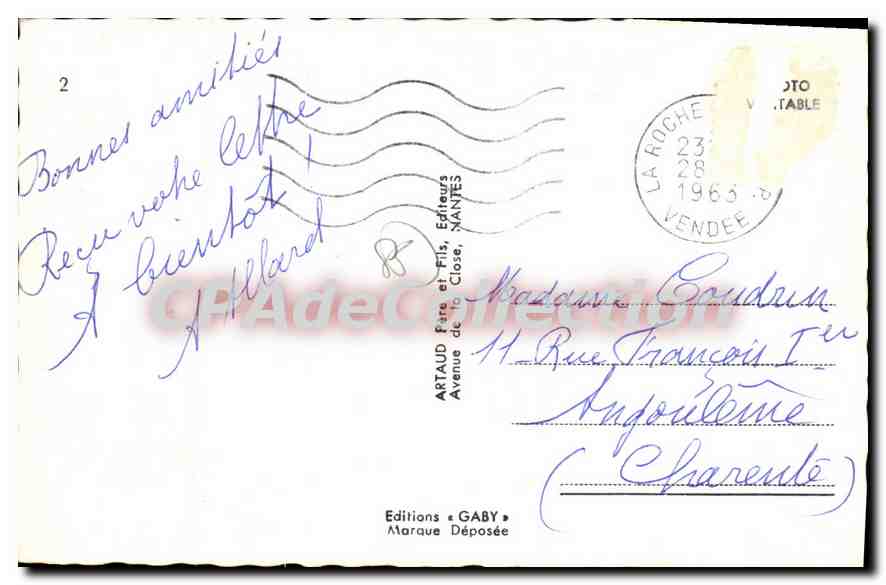 2
Bonnes amitiés
Reçu votre lettre
A bientôt !
A Allard
85
ARTAUD Père et Fils, Editeurs
Avenue de la Close, NANTES
OTO
TABLE
LA ROCHE
23
28
1963
VENDEE
Madame Coudrin
11 Rue François Ier
Angoulême
(Charente)
Editions « GABY »
Marque Déposée
CPAdeCollection